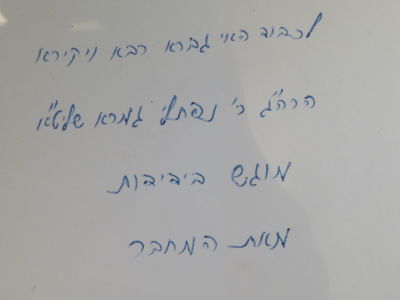 לכבוד האי גברא רבא ויקירא
הרה"ג ר' נפתלי גמרא שליט"א
מוגש בידידות
מאת המחבר